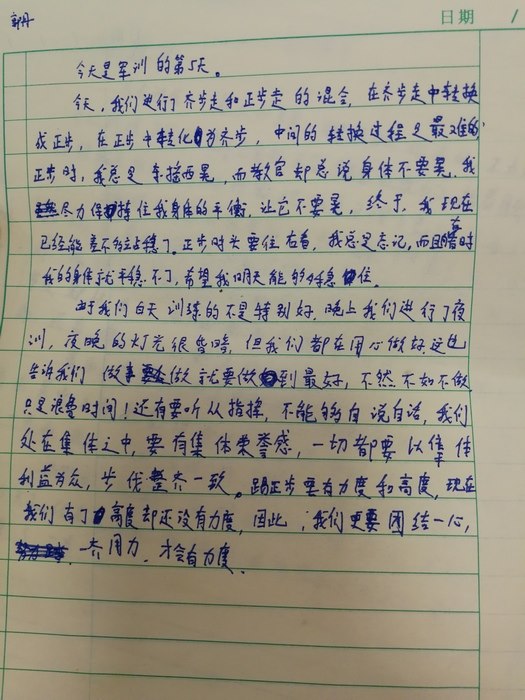 日期
今天是军训的第5天。
今天,我们进行了齐步走和正步走的混合,在齐步走中转换
成正步,在正步中转化为齐步,中间的转换过程是最难的
正步时,我总是东摇西晃,而教官却总说身体不要晃,我
尽力保持住我身体的平衡,让它不要晃,终于,我现在
已经能差不多站稳了。正步时头要往右看,我总是忘记,而且看时
我的身体就平稳不了,希望我明天能够稳住。
由于我们白天训练的不是特别好,晚上我们进行了夜
训,夜晚的灯光很昏暗,但我们都在用心做好,这也
告诉我们做事要做就要做到最好,不然不如不做
只是浪费时间!还有要听从指挥,不能够自说自话,我们
处在集体之中,要有集体荣誉感,一切都要以集体
利益为众,步伐整齐一致。踢正步要有力度和高度,现在
我们有了高度却还没有力度,因此,我们更要团结一心,
一齐用力,才会有力度.